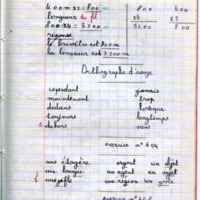 400m x 2 = 800 800 400
longueur du fil x4 x2
800 x 4 = 3200 3200 800
réponse
le périmètre est 800m
la longueur est 3200m
Orthographe d'usage
cependant jamais
maintenant trop
dedans lorsque
toujours longtemps
dehors sans
exercice n° 654
une étagère argent un objet
une bougie un agent un sujet
une région un
exercice n°